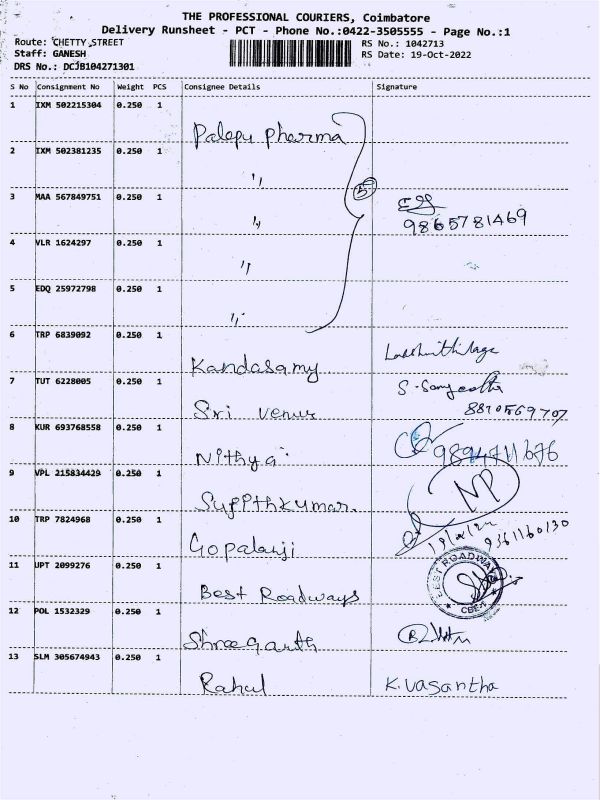 THE PROFESSIONAL COURIERS, Coimbatore
Delivery Runsheet - PCT - Phone No.:0422-3505555 - Page No.:1
Route: CHETTY STREET
RS No.: 1042713
Staff: GANESH
RS Date: 19-Oct-2022
DRS No.: DCJB104271301
S No Consignment No Weight PCS Consignee Details Signature
1 IXM 502215304 0.250 1
Palepu Pharma
2 IXM 502381235 0.250 1
"
5
3 MAA 567849751 0.250 1
"
9865781469
4 VLR 1624297 0.250 1
"
5 EDQ 25972798 0.250 1
"
6 TRP 6839092 0.250 1
Kandasamy
7 TUT 6228005 0.250 1
Sri venus
8870569707
8 KUR 693768558 0.250 1
Nithya
9894711676
9 VPL 215834429 0.250 1
NP
10 TRP 7824968 0.250 1
Gopalanji
9361160130
11 UPT 2099276 0.250 1
Best Roadways
BEST ROADWAYS
CBE-1
12 POL 1532329 0.250 1
13 SLM 305674943 0.250 1
Rahul K. Vasantha